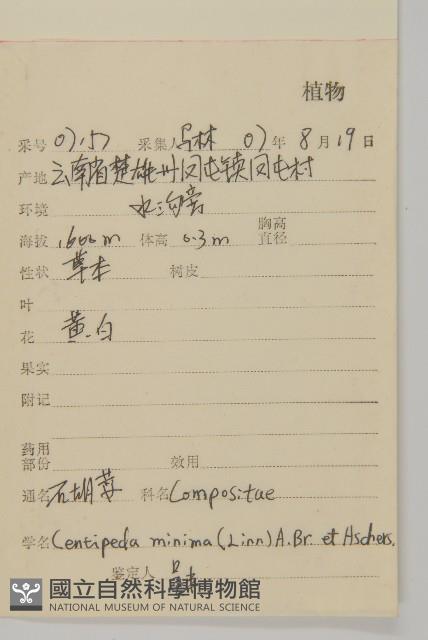 植物
采号 0757 采集人 马林 07年8月19日
产地 云南省楚雄州凤屯镇凤屯村
环境 水沟旁
海拔 1600m 体高 0.3m 胸高直径
性状 草本 树皮
叶
花 黄白
果实
附记
药用部份 效用
通名 石胡荽 科名 Compositae
学名 Centipeda minima (Linn) A.Br. et Aschers.
鉴定人
國立自然科學博物館
NATIONAL MUSEUM OF NATURAL SCIENCE